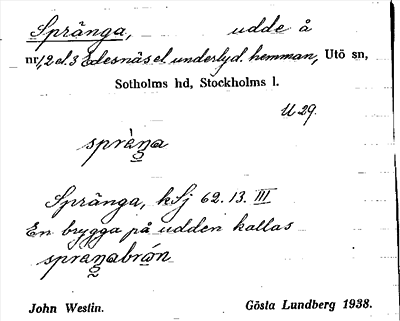 Spränga, udde å
nr 1, 2 el. 3 Edesnäs el underlyd. hemman, Utö sn,
Sotholms hd, Stockholms l.
U 29.
spràŋa
Spränga, kSj 62. 13. III
En brygga på udden kallas
spraŋabrón
John Westin. Gösta Lundberg 1938.